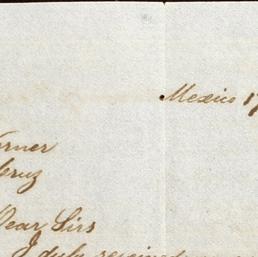 Mexico 17
orner
Cruz
Dear Sirs
I duly received